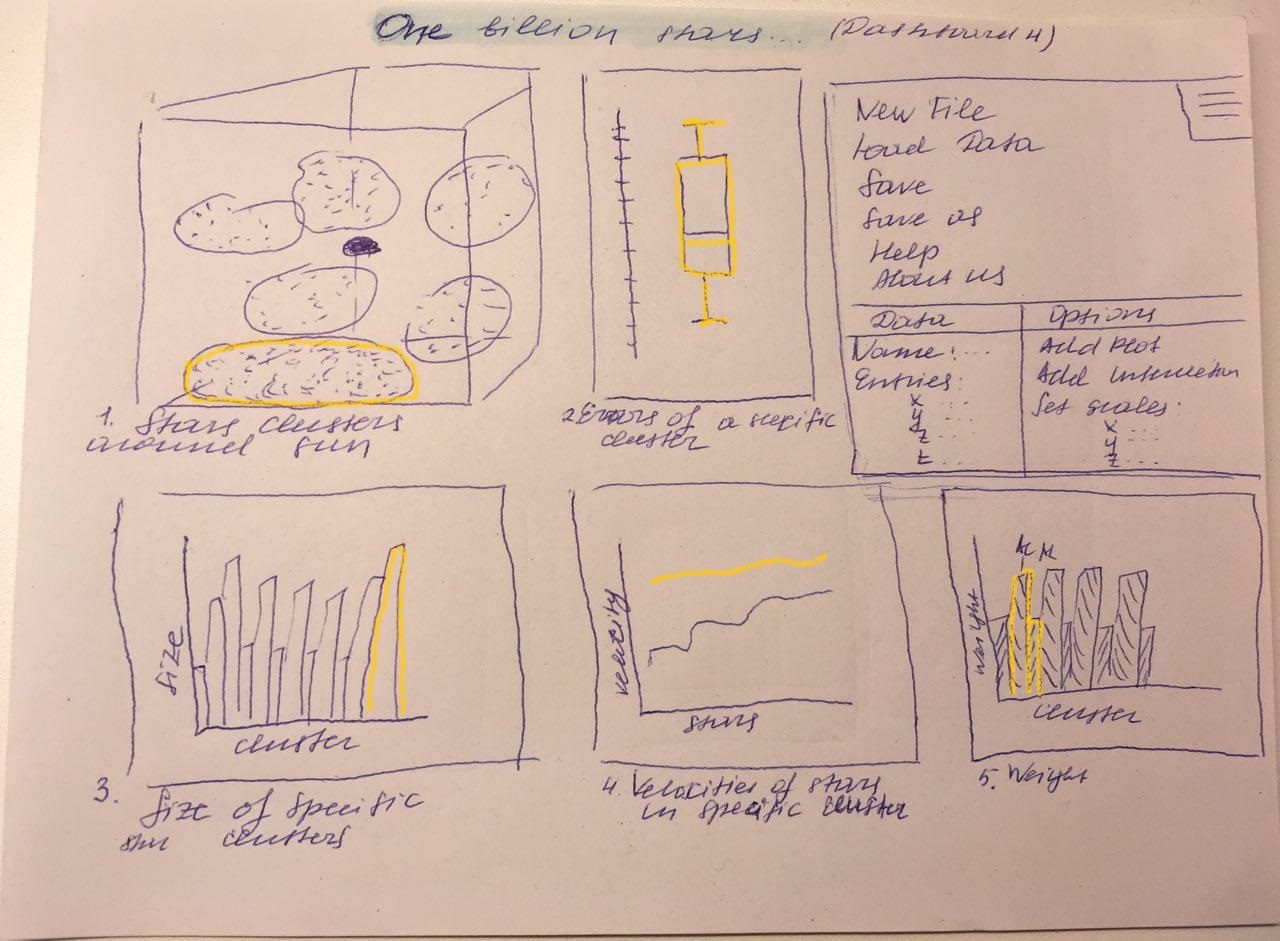 One billion stars... (Dashboard 4)
1. Stars clusters
around sun
2. Errors of a specific
cluster
New File
Load Data
Save
Save as
Help
About us
Data
Name: ...
Entries:
x ...
y ...
z ...
t ...
Options
Add Plot
Add Interaction
Set scales:
x ...
y ...
z ...
Size
cluster
3. Size of specific
star clusters
velocity
stars
4. Velocities of stars
in specific cluster
M
Weight
cluster
5. Weight